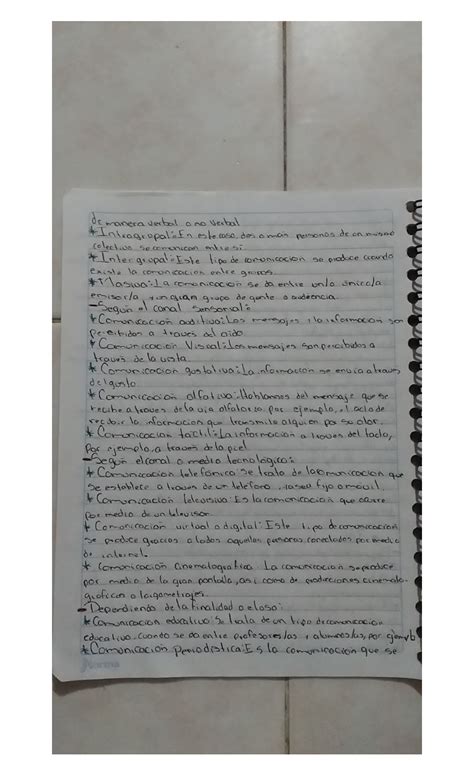 de manera verbal o no verbal
* Intragrupal: En este caso dos o más personas de un mismo
colectivo se comunican entre sí.
* Intergrupal: Este tipo de comunicación se produce cuando
existe la comunicación entre grupos.
* Masiva: La comunicación se da entre un/a único/a
emisor/a y un gran grupo de gente o audiencia.
- Según el canal sensorial:
* Comunicación auditiva: Los mensajes y la información son
percibidos a través del oído
* Comunicación Visual: Los mensajes son percibidos a
través de la vista
* Comunicación gustativa: La información se envía a través
del gusto
* Comunicación olfativa: Hablamos del mensaje que se
recibe a través de la vía olfatoria por ejemplo, el acto de
recibir la información que transmite alguien por su olor.
* Comunicación táctil: La información a través del tacto,
por ejemplo, a través de la piel
- Según el canal o medio tecnológico:
* Comunicación telefónica: Se trata de la comunicación que
se establece a través de un teléfono, ya sea fijo o móvil.
* Comunicación televisiva: Es la comunicación que ocurre
por medio de un televisor.
* Comunicación virtual o digital: Este tipo de comunicación
se produce gracias a todas aquellas personas conectadas por medio
de internet.
* Comunicación Cinematográfica: La comunicación se produce
por medio de la gran pantalla, así como de producciones cinemato-
gráficas o largometrajes.
- Dependiendo de la finalidad o el uso:
* Comunicación educativa: Se trata de un tipo de comunicación
educativa, cuando se da entre profesores/as y alumnos/as, por ejemplo
* Comunicación periodística: Es la comunicación que se
Norma